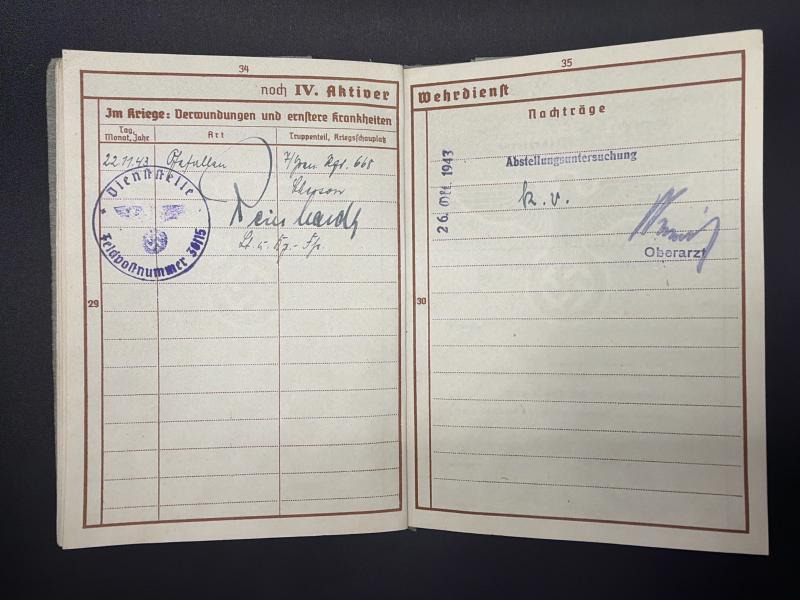 34
noch IV. Aktiver
Im Kriege: Verwundungen und ernstere Krankheiten
Tag, Monat, Jahr
Art
Truppenteil, Kriegsschauplatz
22.11.43 Gefallen 7/Gren. Rgt. 668
Dienststelle
Feldpostnummer 39115
Lt. u. Kp.-Fhr.
29
35
Wehrdienst
Nachträge
26. Okt. 1943
Abstellungsuntersuchung
k. v.
Oberarzt
30